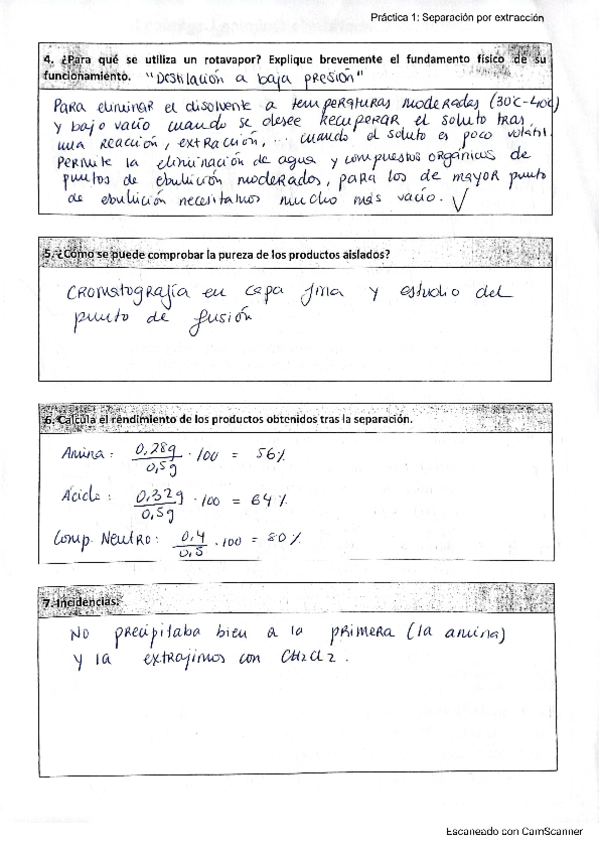 Práctica 1: Separación por extracción
4. ¿Para qué se utiliza un rotavapor? Explique brevemente el fundamento físico de su
funcionamiento. "Destilación a baja presión"
Para eliminar el disolvente a temperaturas moderadas (30ºC-40ºC)
y bajo vacío cuando se desee recuperar el soluto tras
una reacción, extracción, ... cuando el soluto es poco volátil.
Permite la eliminación de agua y compuestos orgánicos de
puntos de ebullición moderados, para los de mayor punto
de ebullición necesitamos mucho más vacío. ✓
5. ¿Cómo se puede comprobar la pureza de los productos aislados?
Cromatografía en capa fina y estudio del
punto de fusión
6. Calcula el rendimiento de los productos obtenidos tras la separación.
Amina: 0,28g/0,5g · 100 = 56%
Ácido: 0,32g/0,5g · 100 = 64%
Comp. Neutro: 0,4/0,5 · 100 = 80%
7. Incidencias:
No precipitaba bien a la primera (la amina)
y la extrajimos con CH2Cl2.
Escaneado con CamScanner